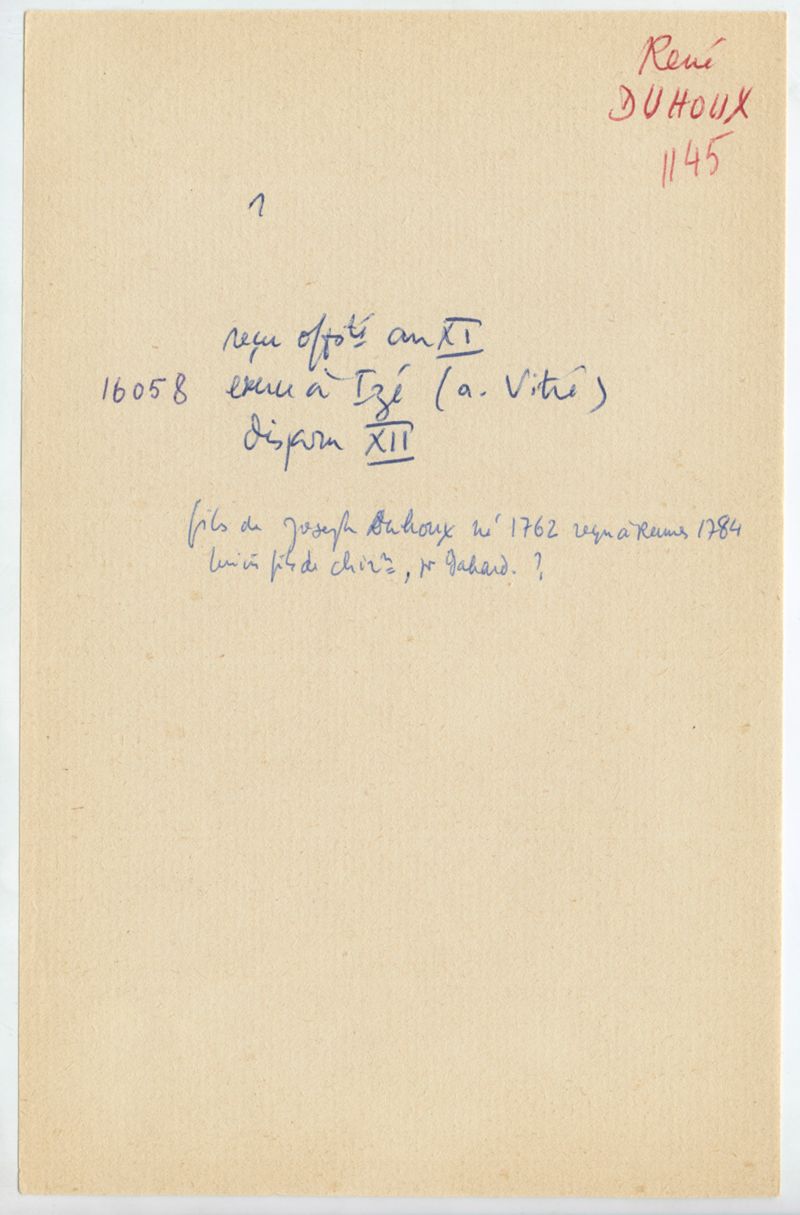 René
DUHOUX
1145
1
reçu off té an XI
16058 exerce à Izé (a. Vitré)
disparu XII
fils de Joseph Duhoux né 1762 reçu à Rennes 1784
fils de chirn, pr Dahard. ?